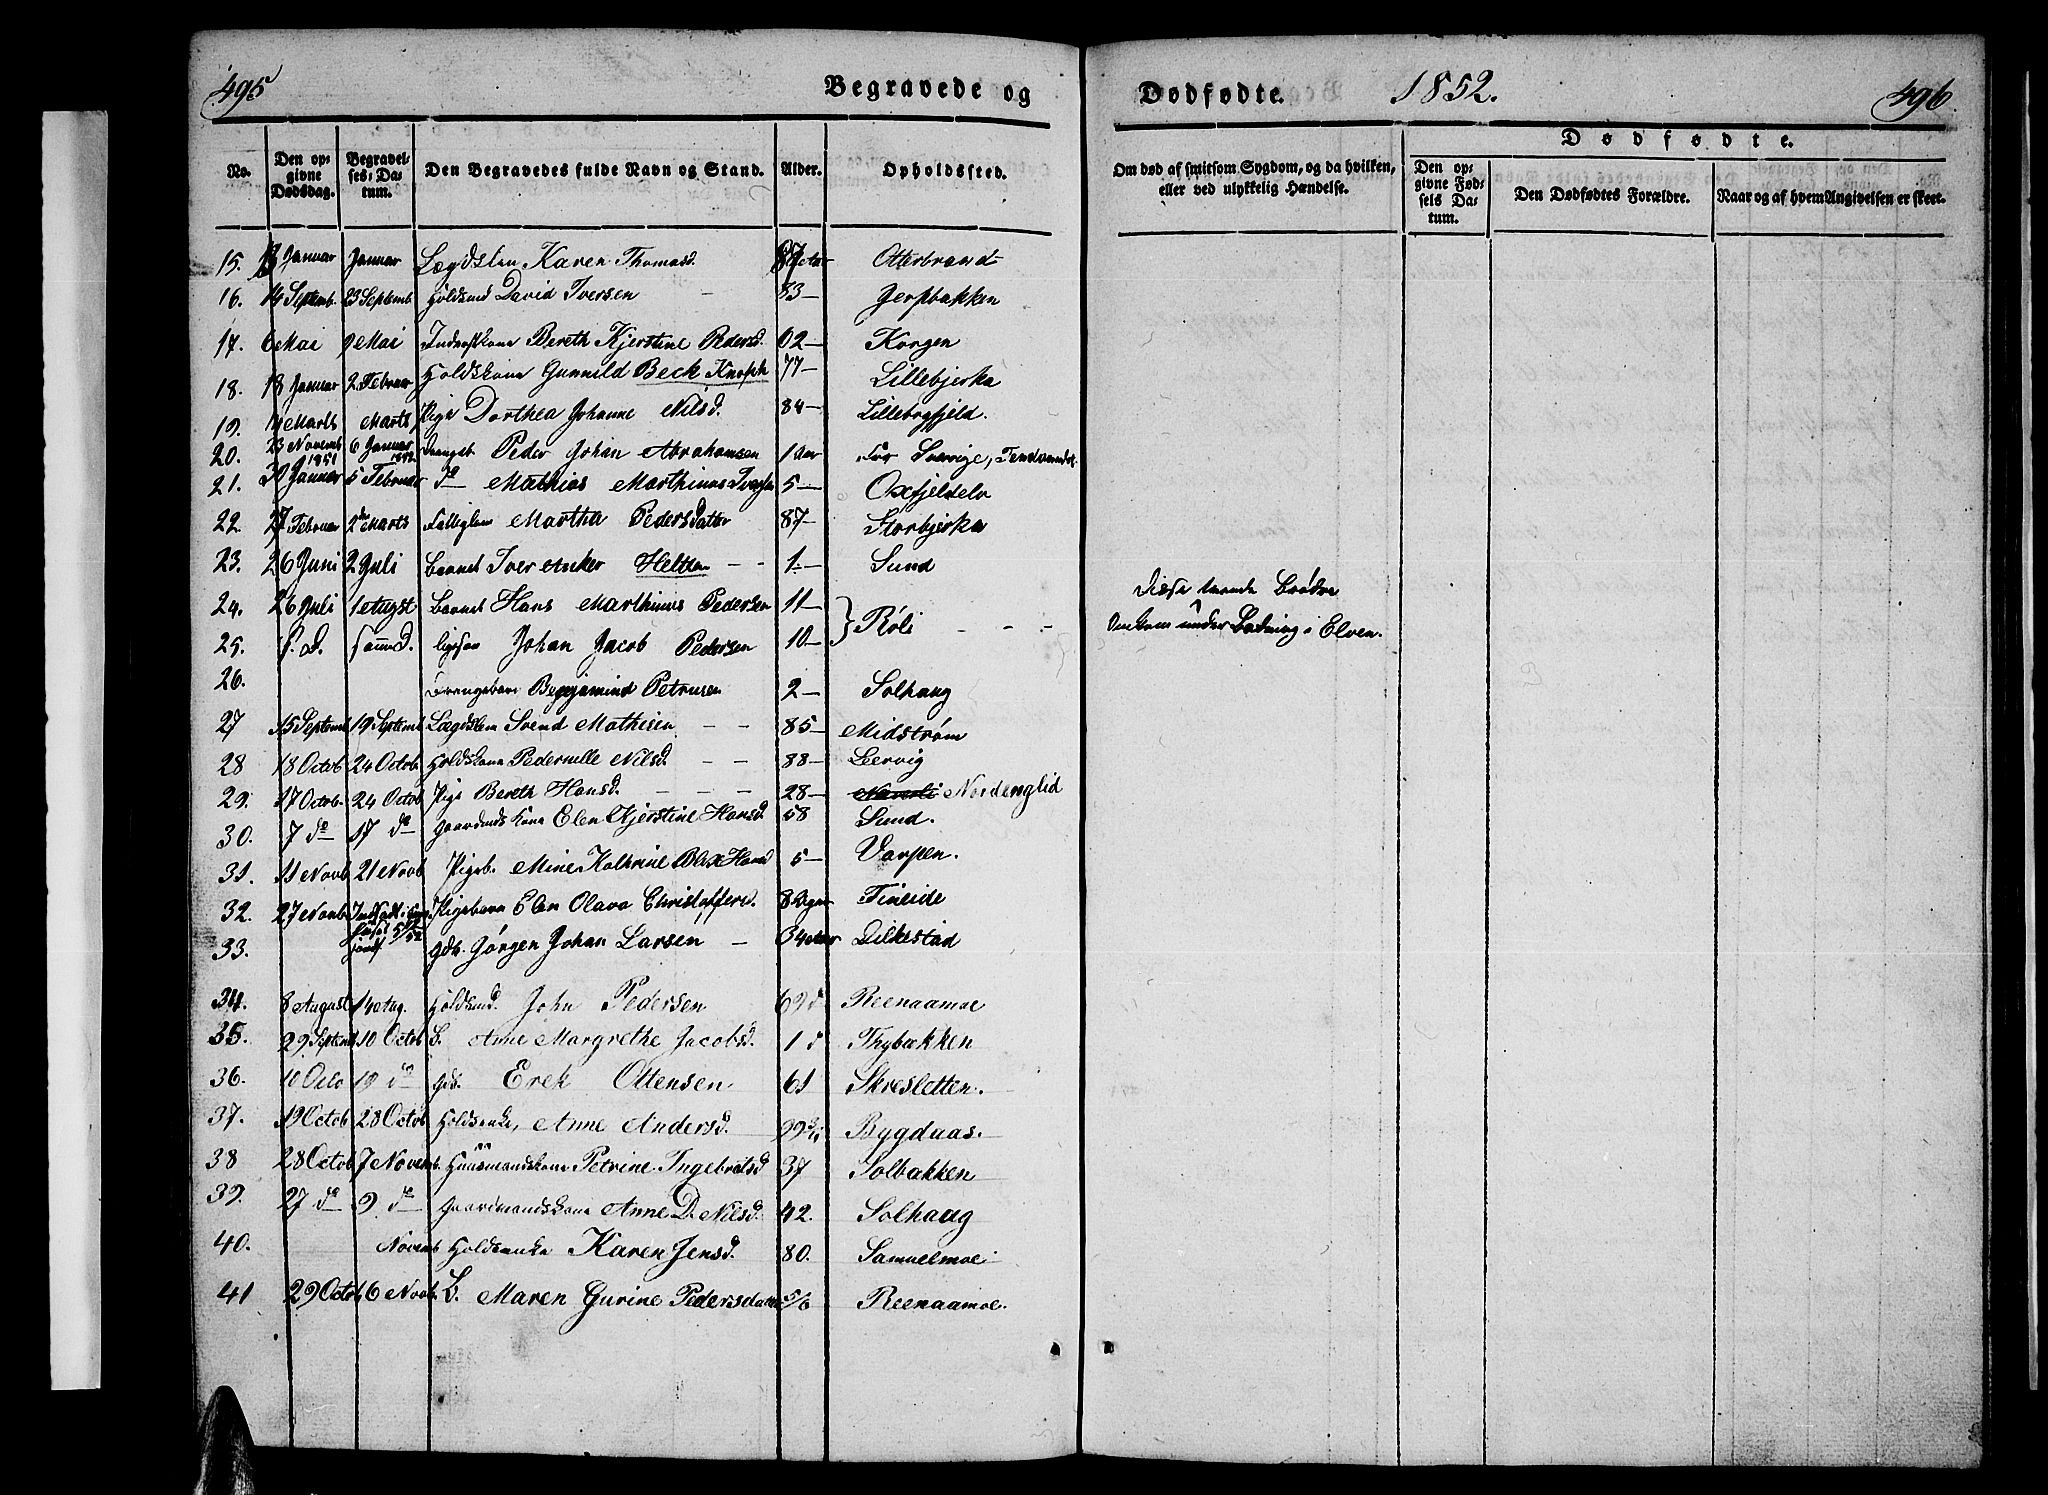 495 Begravede og
Dødfødte. 1852. 496
No. Den opgivne Dødsdag. Begravelses-Datum. Den Begravedes fulde Navn og Stand. Alder. Opholdssted.
Om død af smitsom Sygdom, og da hvilken, eller ved ulykkelig Hændelse. Dødfødte. Den opgivne Fødsels Datum. Den Dødfødtes Forældre. Naar og af hvem Angivelsen er skeet.
15. Januar Januar Lægdslem Karen Thomasd. Otterbrand
16. 14 Septemb. 23 Septemb David Iversen 83 — Jerpbakken
17. 6 Mai 9 Mai Bereth Kjerstine Pedersd. 62 — Korgen
18. 18 Januar 2 Februar Gunnild Beck Knoph 77 — Lillebjerka
19. Marts Marts Pige Dorthea Johanne Nilsd. 84 — Lillebogfjeld.
20. 23 Novemb 1851 6 Januar 1852 Drengeb. Peder Johan Abrahamsen 1 Aar Fra Sverige,
21. 30 Januar 5 Februar do Mathias Marthinus Iversen 5 — Oxfjeldelv
22 27 Februar 2den Marts Fattiglem Martha Pedersdatter 87 — Storbjerka
23. 26 Juni 2 Juli Barnet Iver Anker Heltzen — — 1. — Sund
24. 26 Juli 1 August Barnet Hans Marthinus Pedersen 11 — } Røli — — — Disse tvende Brødre
25. S. D. samme D. ligesaa Johan Jacob Pedersen 10 — under Badning i Elven.
26. Drengebarn Benjamind Petersen 2 — Solhaug
27 15 Septemb 19 Septemb Lægdslem Svend Mathisen — — 85 — Midstrøm
28 18 Octob 24 Octob. Pedernille Nilsd. — — 88 — Leervig
29. 17 Octob. 24 Octob Pige Bereth Hansd. — — — 28 — Nordenglid
30. 7 do 17 do Gaardmds Kone Elen Kjerstine Hansd 58 Sund.
31. 11 Novb 21 Novb Pigeb. Mine Kathrine Blix Hansd 5 — Varpen.
32. 27 Novb Pigebarn Elen Olava Christoffersd. 8 Dage Fineide
33. Gdb. Jørgen Johan Larsen — 34 Aar Dilkestad
34. 8 August 14 Aug. John Pedersen 69 d Reenaamoe
35. 29 Septemb 10 Octob B. Anne Margrethe Jacobsd. 1 d Thybækken
36. 10 Octo 19 do Gdb. Erek Ottensen 61 Skresletten.
37. 19 Octob 28 Octob Holdsenke, Anne Andersd. Bygdaas.
38 28 Octob 7 Novemb. Huusmandskone Petrine Ingebrotsd 37 Solbakken
39. 27 do 9 do Gaardmandskone Anne D. Nilsd. 42. Solhaug
40. Novemb Holdsenke Karen Jensd. 80. Samuelmoe
41 29 Octob. 6 Novb. B. Maren Gurine Pedersdatter 5/6 Reenaamoe.